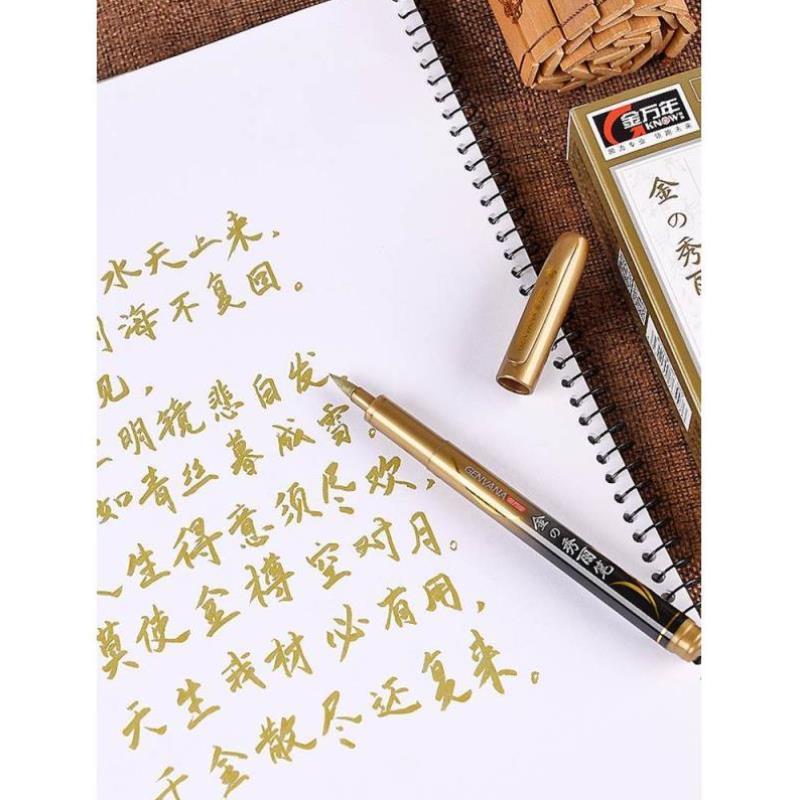 水天上来，
海不复回。
见，
明镜悲白发
如青丝暮成雪。
生得意须尽欢，
莫使金樽空对月。
天生我材必有用，
千金散尽还复来。
GENVANA
金の秀丽笔
金万年
KNOW
金の秀丽